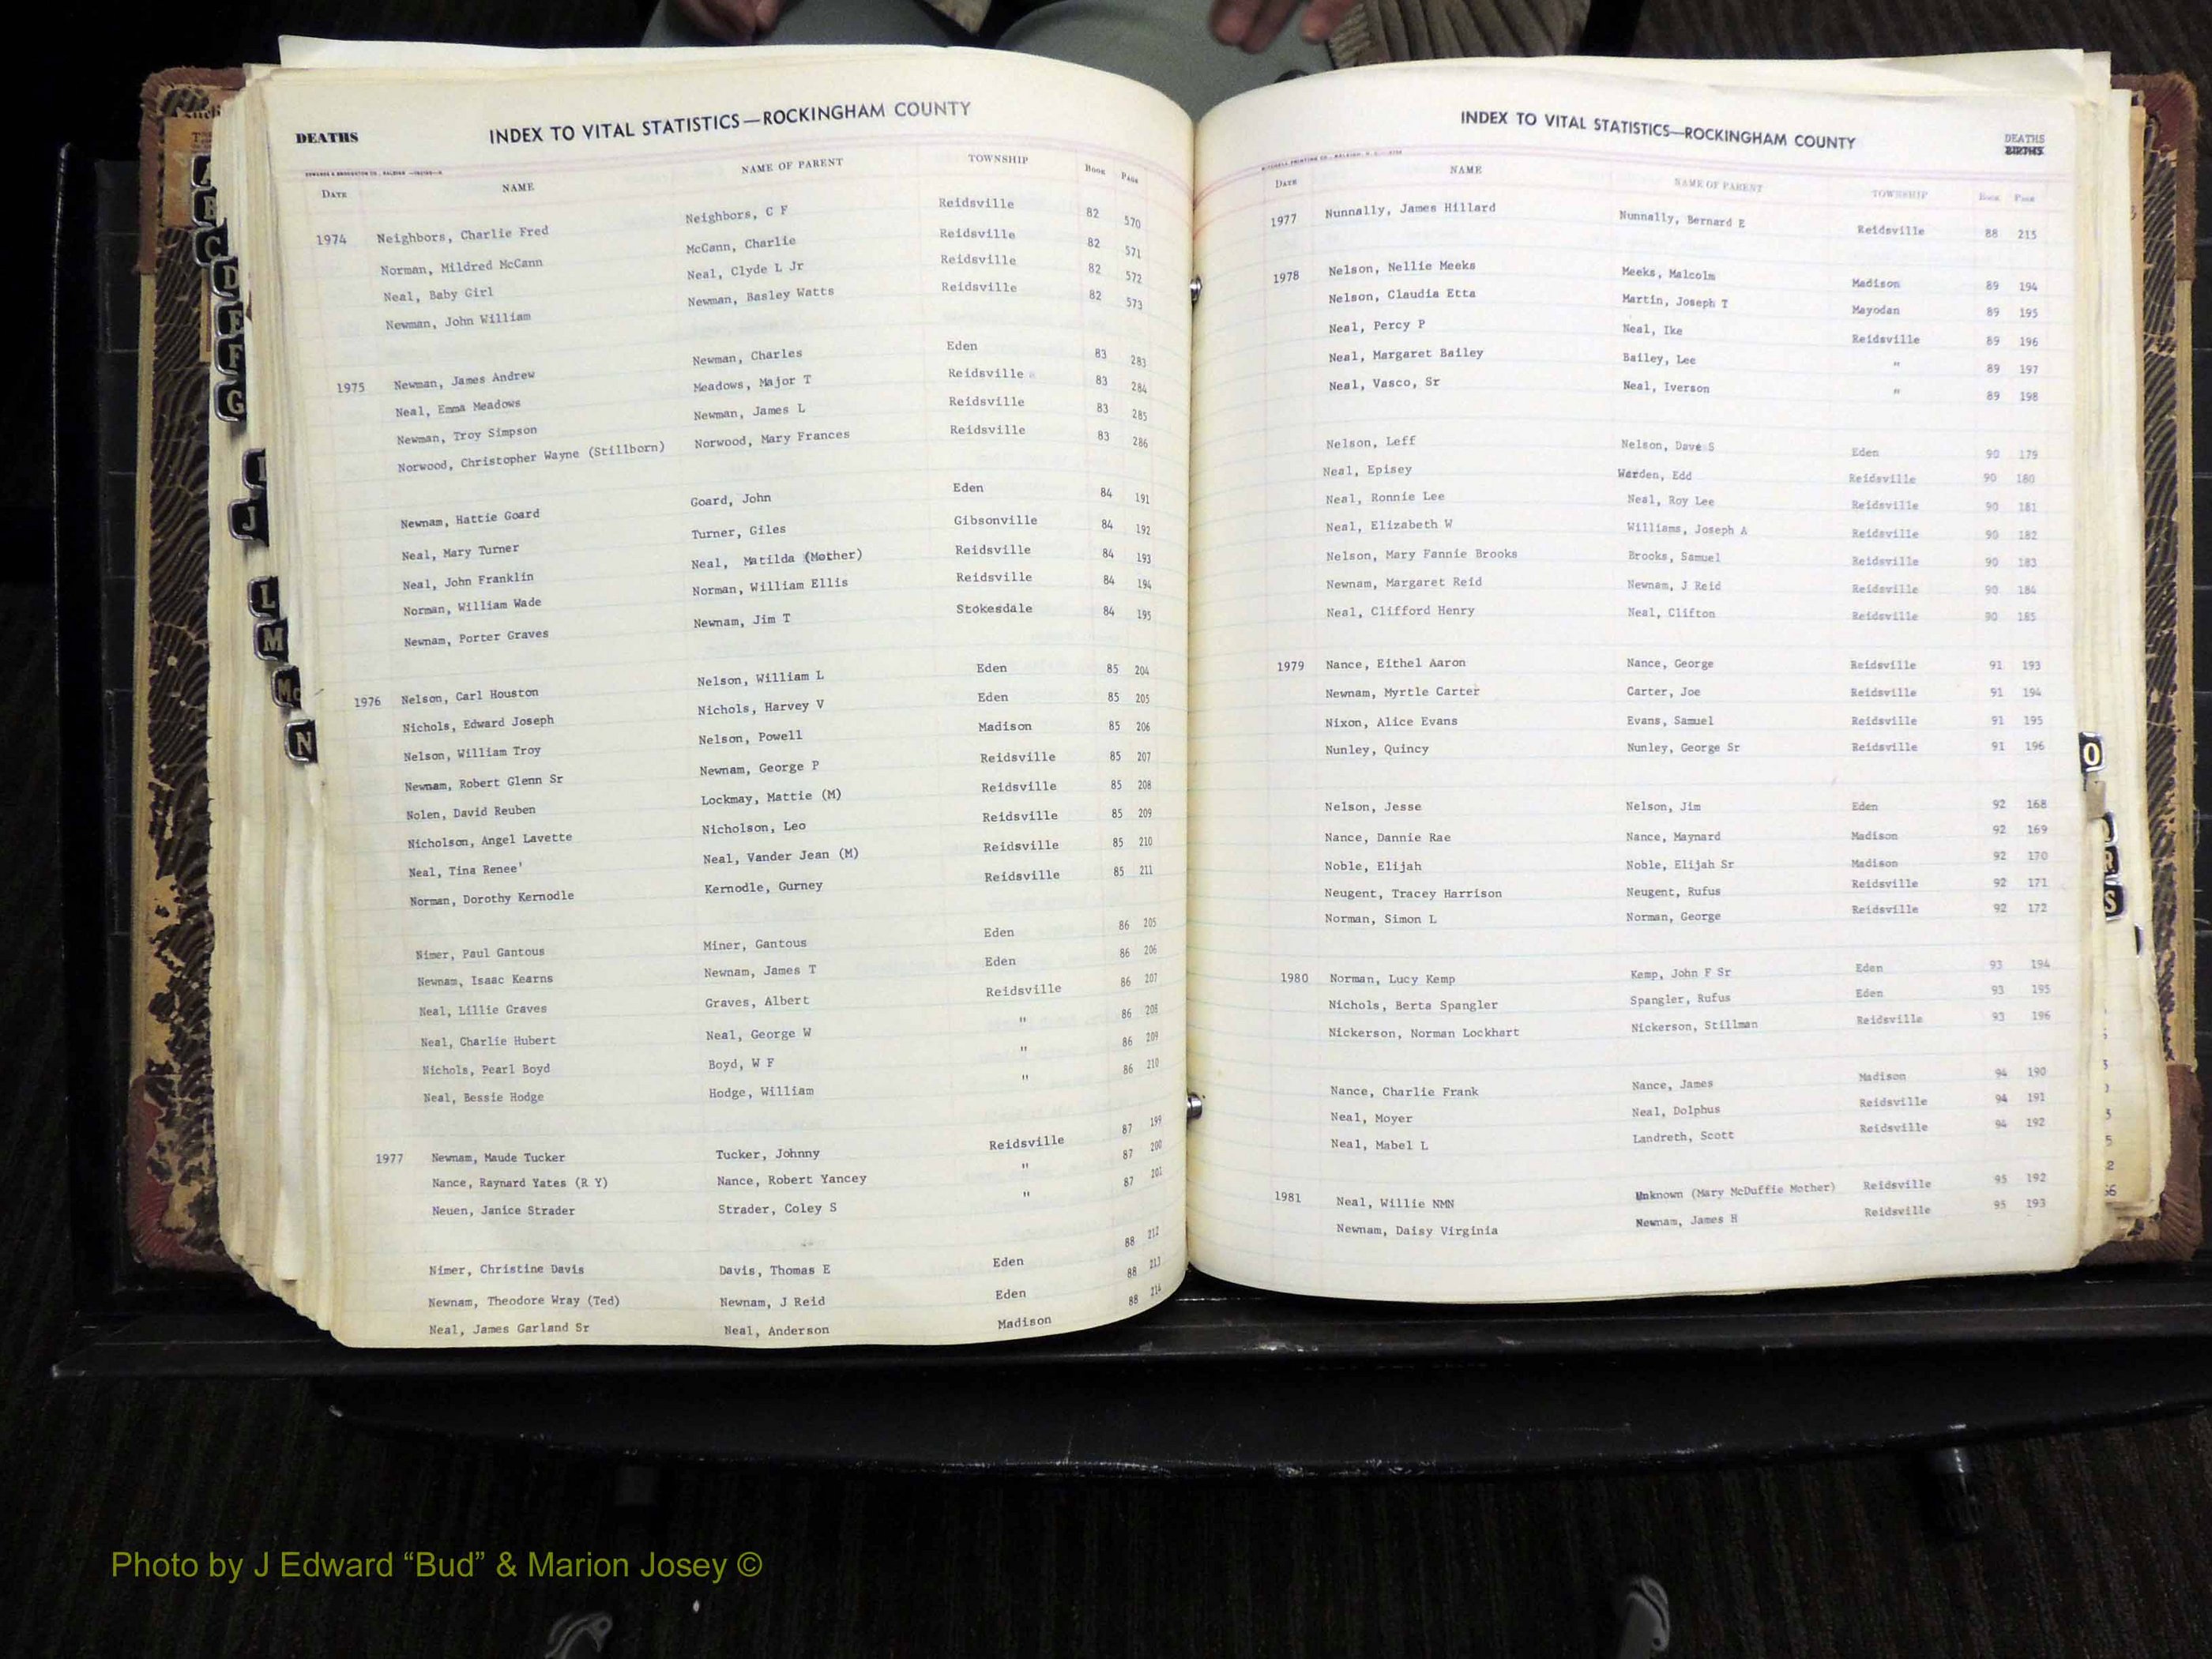 DEATHS
INDEX TO VITAL STATISTICS—ROCKINGHAM COUNTY
DATE NAME NAME OF PARENT TOWNSHIP BOOK PAGE
1974 Neighbors, Charlie Fred Neighbors, C F Reidsville 82 570
Norman, Mildred McCann McCann, Charlie Reidsville 82 571
Neal, Baby Girl Neal, Clyde L Jr Reidsville 82 572
Newman, John William Newman, Basley Watts Reidsville 82 573
1975 Newman, James Andrew Newman, Charles Eden 83 283
Neal, Emma Meadows Meadows, Major T Reidsville 83 284
Newman, Troy Simpson Newman, James L Reidsville 83 285
Norwood, Christopher Wayne (Stillborn) Norwood, Mary Frances Reidsville 83 286
Newnam, Hattie Goard Goard, John Eden 84 191
Neal, Mary Turner Turner, Giles Gibsonville 84 192
Neal, John Franklin Neal, Matilda (Mother) Reidsville 84 193
Norman, William Wade Norman, William Ellis Reidsville 84 194
Newnam, Porter Graves Newnam, Jim T Stokesdale 84 195
1976 Nelson, Carl Houston Nelson, William L Eden 85 204
Nichols, Edward Joseph Nichols, Harvey V Eden 85 205
Nelson, William Troy Nelson, Powell Madison 85 206
Newnam, Robert Glenn Sr Newnam, George P Reidsville 85 207
Nolen, David Reuben Lockmay, Mattie (M) Reidsville 85 208
Nicholson, Angel Lavette Nicholson, Leo Reidsville 85 209
Neal, Tina Renee' Neal, Vander Jean (M) Reidsville 85 210
Norman, Dorothy Kernodle Kernodle, Gurney Reidsville 85 211
Nimer, Paul Gantous Miner, Gantous Eden 86 205
Newnam, Isaac Kearns Newnam, James T Eden 86 206
Neal, Lillie Graves Graves, Albert Reidsville 86 207
Neal, Charlie Hubert Neal, George W " 86 208
Nichols, Pearl Boyd Boyd, W F " 86 209
Neal, Bessie Hodge Hodge, William " 86 210
1977 Newnam, Maude Tucker Tucker, Johnny Reidsville 87 199
Nance, Raynard Yates (R Y) Nance, Robert Yancey " 87 200
Neuen, Janice Strader Strader, Coley S " 87 201
Nimer, Christine Davis Davis, Thomas E Eden 88 212
Newnam, Theodore Wray (Ted) Newnam, J Reid Eden 88 213
Neal, James Garland Sr Neal, Anderson Madison 88 214
INDEX TO VITAL STATISTICS—ROCKINGHAM COUNTY
DEATHS
BIRTHS
DATE NAME NAME OF PARENT TOWNSHIP BOOK PAGE
1977 Nunnally, James Hillard Nunnally, Bernard E Reidsville 88 215
1978 Nelson, Nellie Meeks Meeks, Malcolm Madison 89 194
Nelson, Claudia Etta Martin, Joseph T Mayodan 89 195
Neal, Percy P Neal, Ike Reidsville 89 196
Neal, Margaret Bailey Bailey, Lee " 89 197
Neal, Vasco, Sr Neal, Iverson " 89 198
Nelson, Leff Nelson, Dave S Eden 90 179
Neal, Episey Warden, Edd Reidsville 90 180
Neal, Ronnie Lee Neal, Roy Lee Reidsville 90 181
Neal, Elizabeth W Williams, Joseph A Reidsville 90 182
Nelson, Mary Fannie Brooks Brooks, Samuel Reidsville 90 183
Newnam, Margaret Reid Newnam, J Reid Reidsville 90 184
Neal, Clifford Henry Neal, Clifton Reidsville 90 185
1979 Nance, Eithel Aaron Nance, George Reidsville 91 193
Newnam, Myrtle Carter Carter, Joe Reidsville 91 194
Nixon, Alice Evans Evans, Samuel Reidsville 91 195
Nunley, Quincy Nunley, George Sr Reidsville 91 196
Nelson, Jesse Nelson, Jim Eden 92 168
Nance, Dannie Rae Nance, Maynard Madison 92 169
Noble, Elijah Noble, Elijah Sr Madison 92 170
Neugent, Tracey Harrison Neugent, Rufus Reidsville 92 171
Norman, Simon L Norman, George Reidsville 92 172
1980 Norman, Lucy Kemp Kemp, John F Sr Eden 93 194
Nichols, Berta Spangler Spangler, Rufus Eden 93 195
Nickerson, Norman Lockhart Nickerson, Stillman Reidsville 93 196
Nance, Charlie Frank Nance, James Madison 94 190
Neal, Moyer Neal, Dolphus Reidsville 94 191
Neal, Mabel L Landreth, Scott Reidsville 94 192
1981 Neal, Willie NMN Unknown (Mary McDuffie Mother) Reidsville 95 192
Newnam, Daisy Virginia Newnam, James H Reidsville 95 193
C
D
E
F
G
I
J
L
M
Mc
N
O
R
S
Photo by J Edward “Bud” & Marion Josey ©